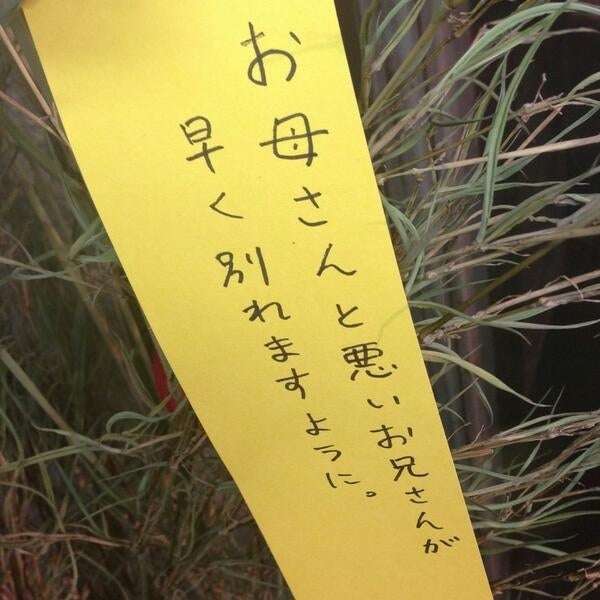 お母さんと悪いお兄さんが
早く別れますように。